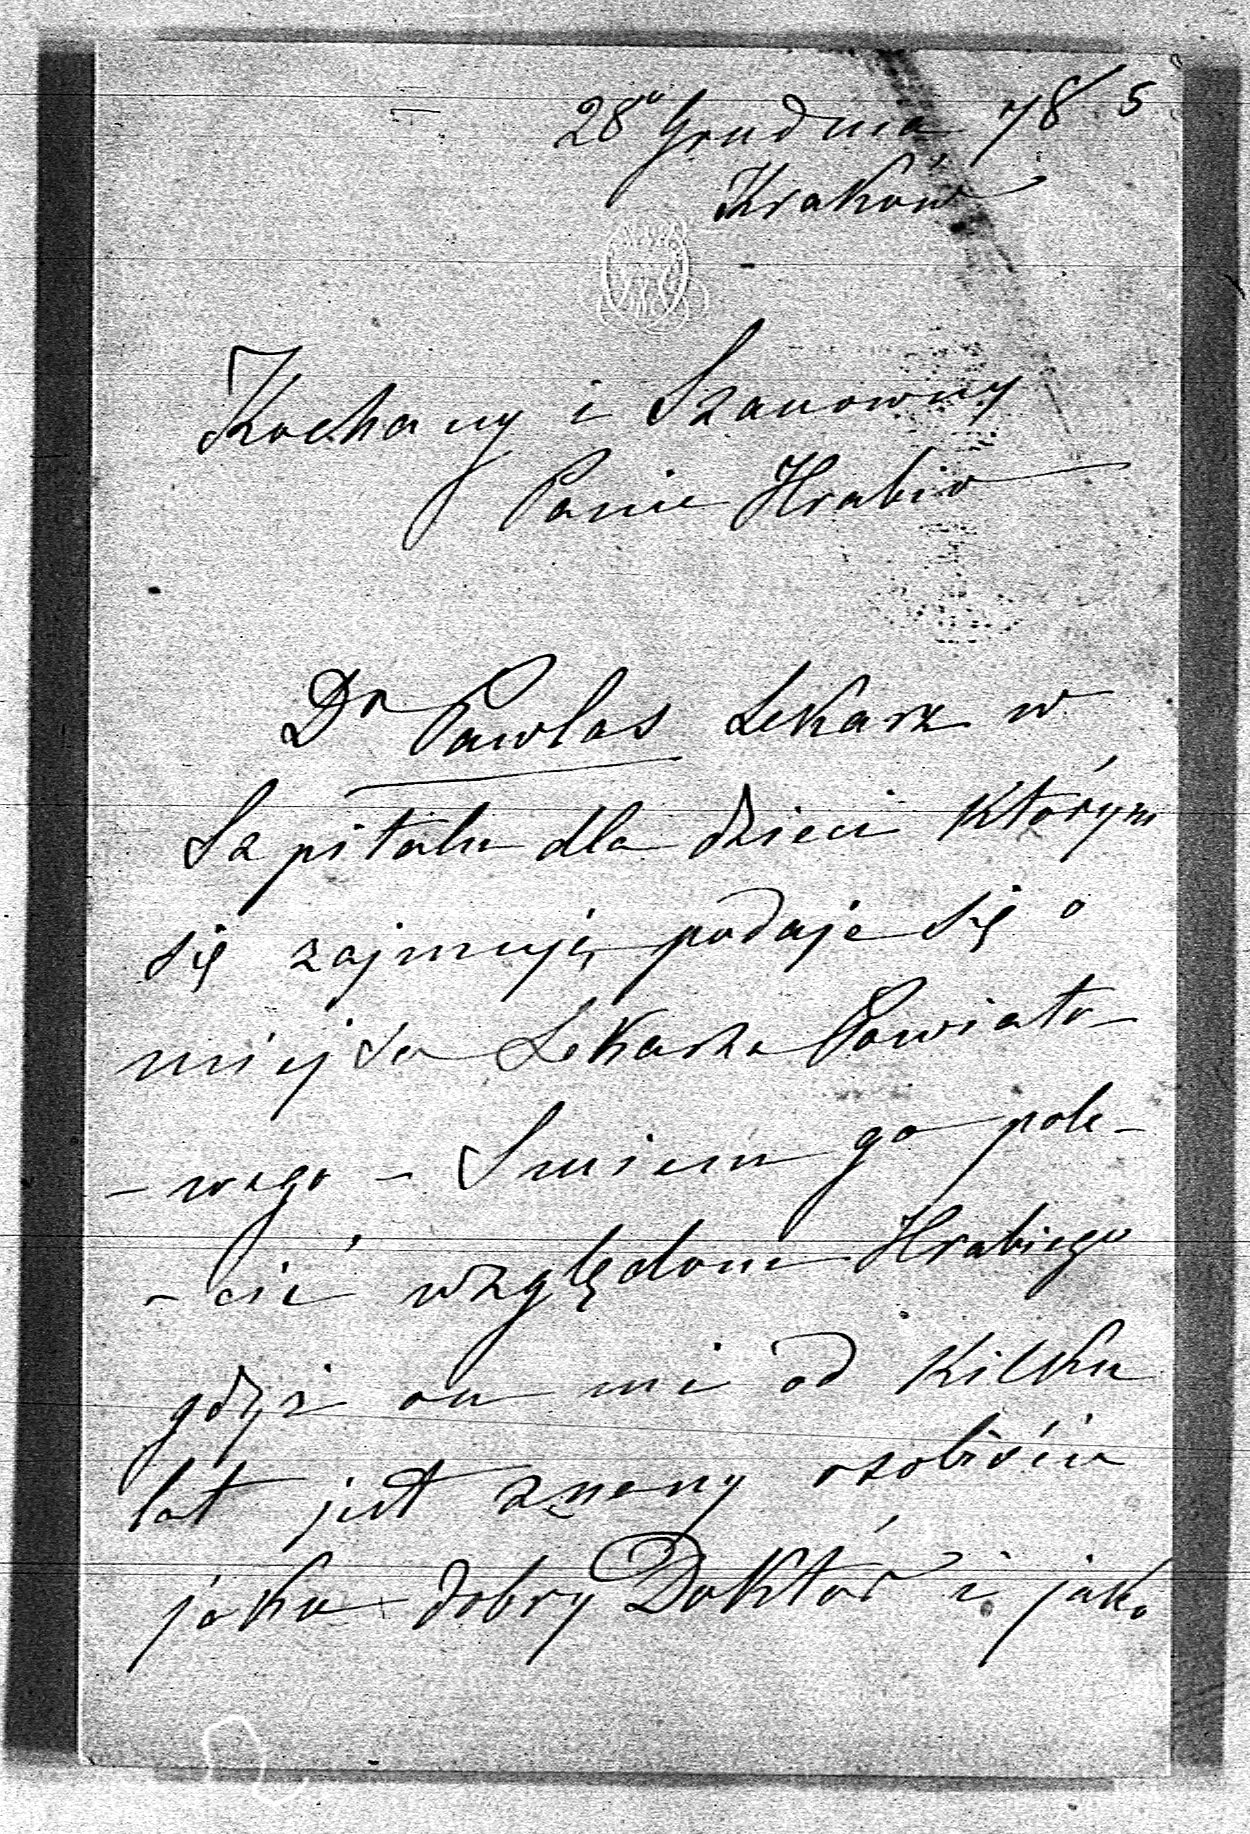 28º Grudnia 78 5
Kraków
Kochany i Szanowny
Panie Hrabio
Dr Pawlas Lekarz w
Szpitalu dla dzieci którym
się zajmuję podaje się o
miejsce Lekarza Powiato-
- wego - Smiem go pole-
- cić względom Hrabiego
gdyż on mi od kilku
lat jest znany osobiście
jako dobry Doktór i jako